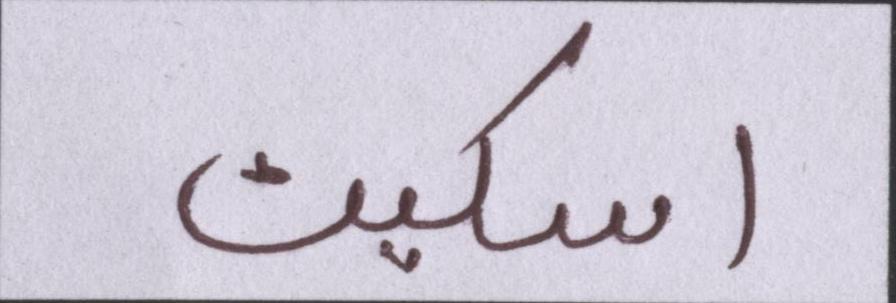 اسکیت